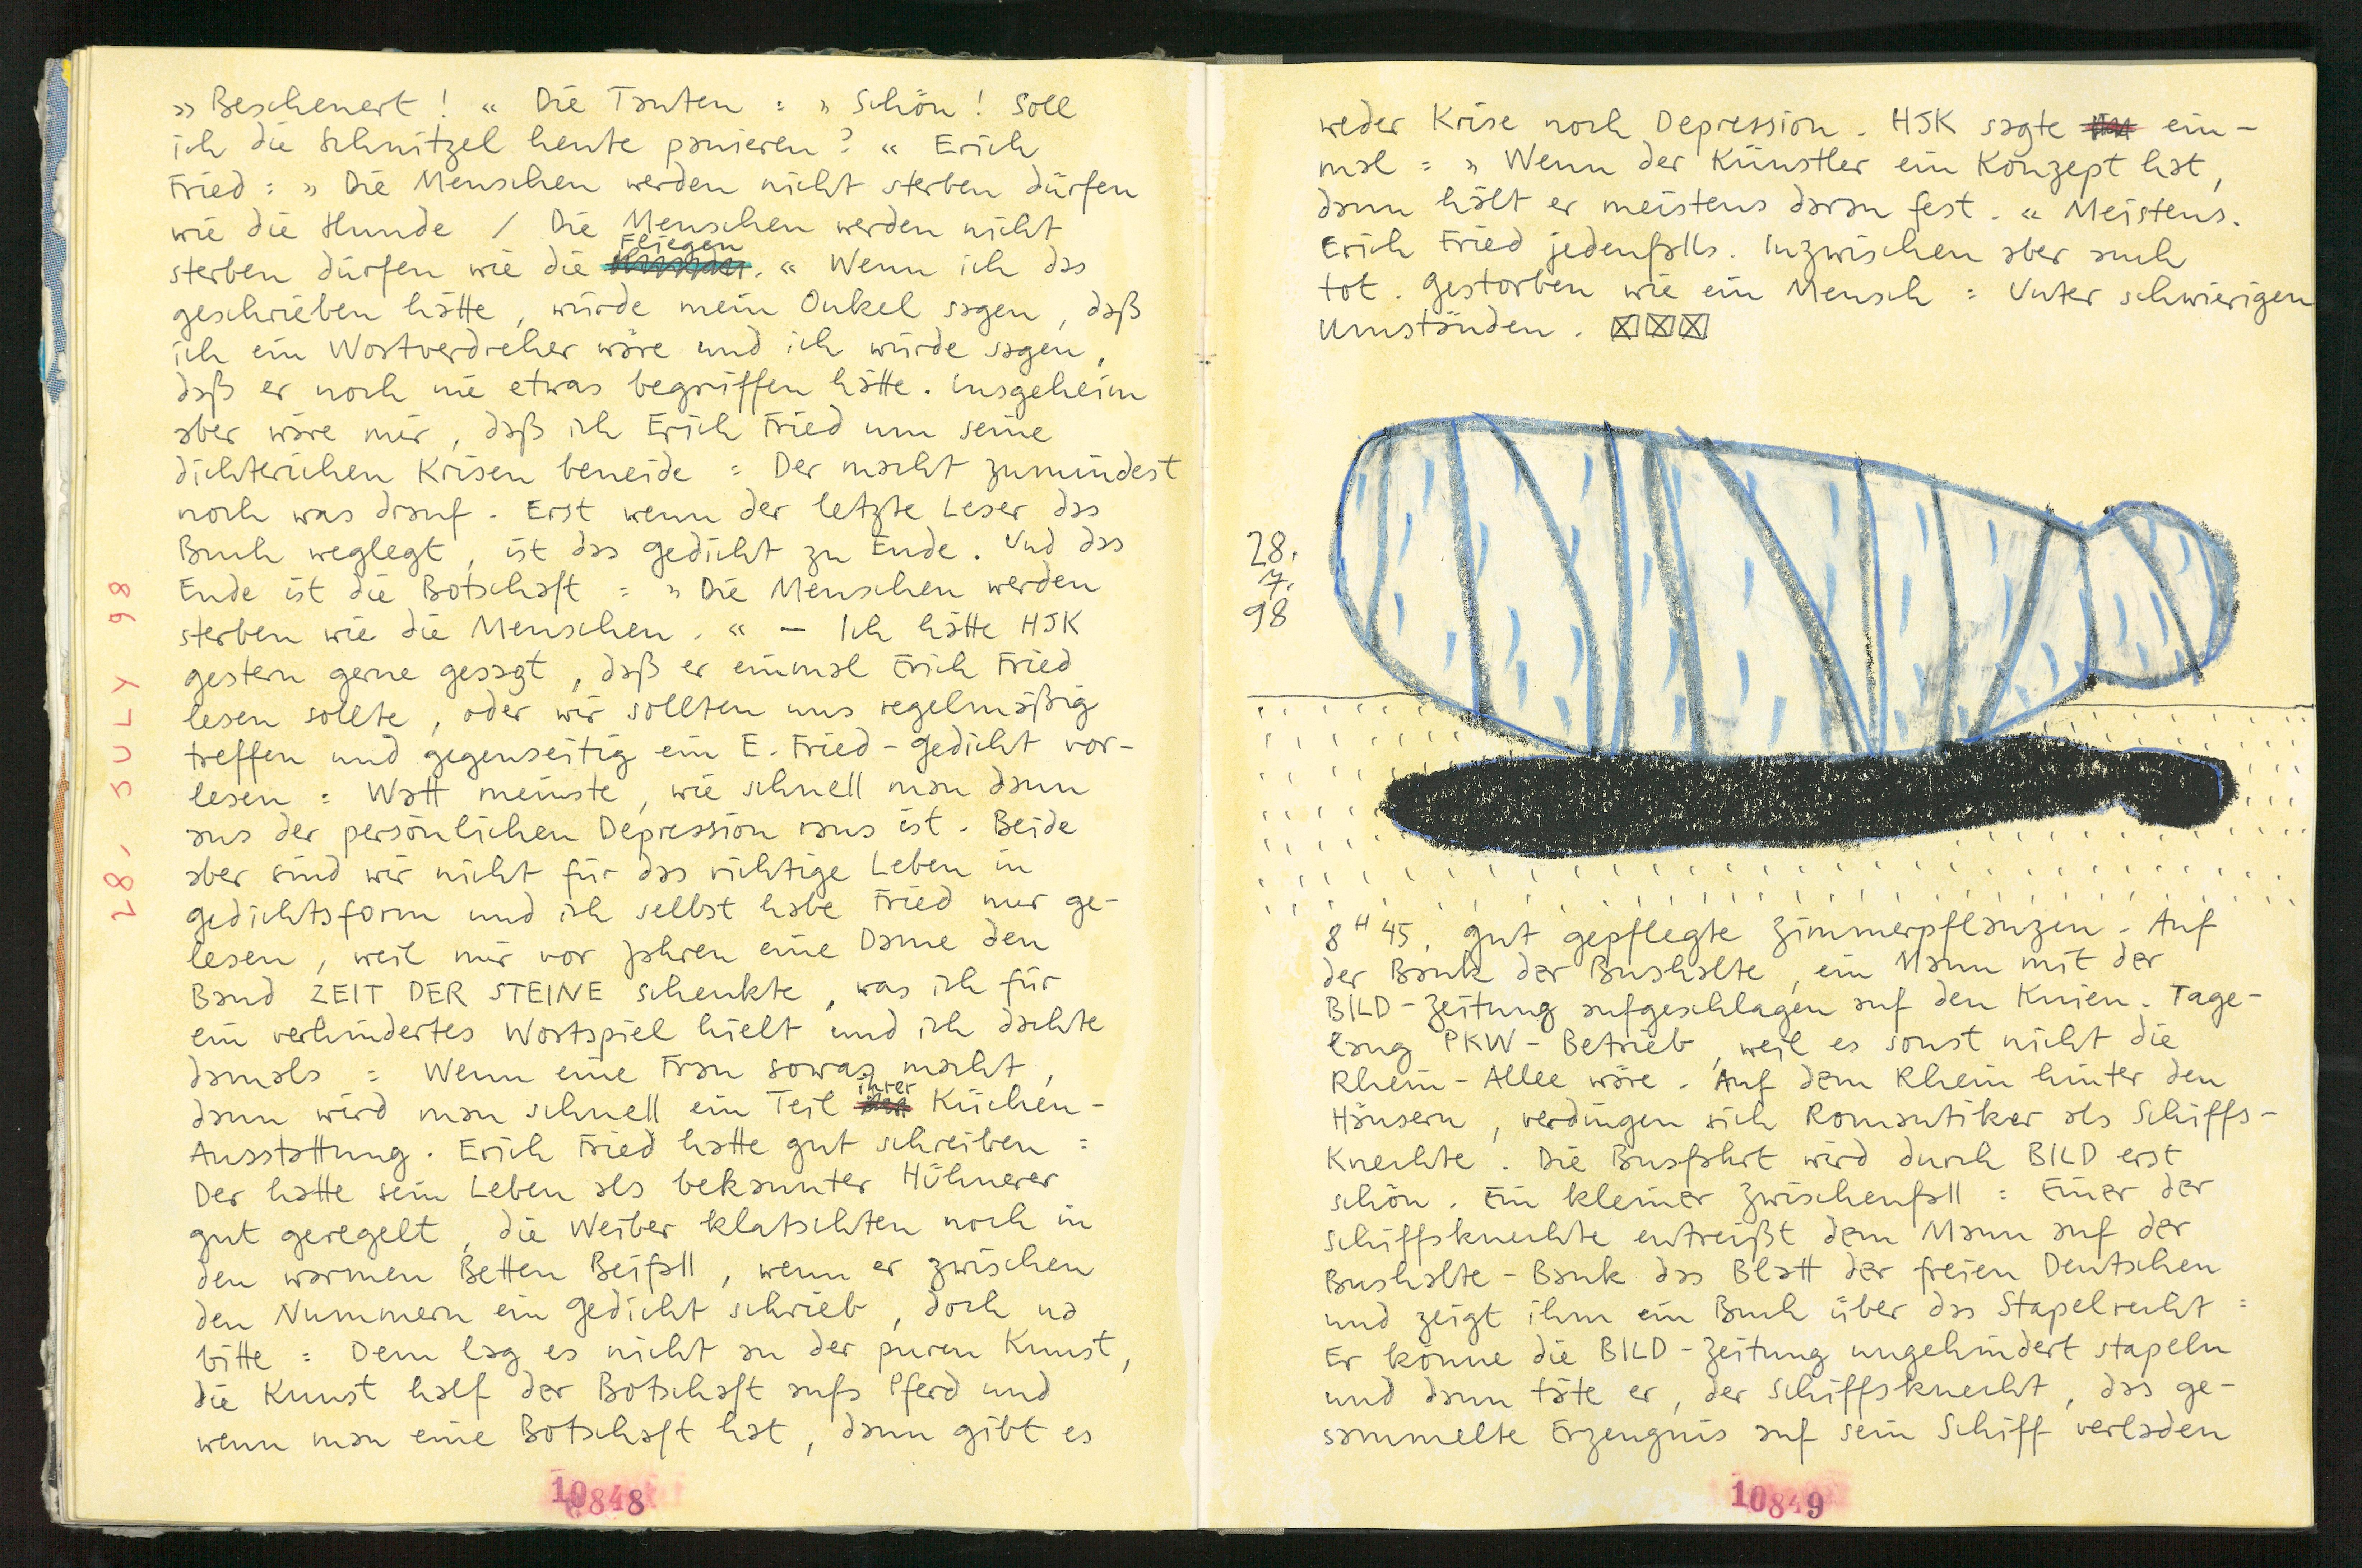 » Bescheuert! « Die Tanten = » Schön! Soll
ich die Schnitzel heute panieren? « Erich
Fried = » Die Menschen werden nicht sterben dürfen
wie die Hunde / Die Menschen werden nicht
sterben dürfen wie die Fliegen. « Wenn ich das
geschrieben hätte, würde mein Onkel sagen, daß
ich ein Wortverdreher wäre und ich würde sagen,
daß er noch nie etwas begriffen hätte. Insgeheim
aber wäre mir, daß ich Erich Fried um seine
dichterichen Krisen beneide = Der macht zumindest
noch was drauf. Erst wenn der letzte Leser das
Buch weglegt, ist das Gedicht zu Ende. Und das
Ende ist die Botschaft = » Die Menschen werden
sterben wie die Menschen. « – Ich hätte HJK
gestern gerne gesagt, daß er einmal Erich Fried
lesen sollte, oder wir sollten uns regelmäßig
treffen und gegenseitig ein E. Fried-Gedicht vor-
lesen = Watt meinste, wie schnell man dann
aus der persönlichen Depression raus ist. Beide
aber sind wir nicht für das richtige Leben in
Gedichtsform und ich selbst habe Fried nur ge-
lesen, weil mir vor Jahren eine Dame den
Band ZEIT DER STEINE schenkte, was ich für
ein verhindertes Wortspiel hielt und ich dachte
damals = Wenn eine Frau sowas macht,
dann wird man schnell ein Teil ihrer Küchen-
Ausstattung. Erich Fried hatte gut schreiben =
Der hatte sein Leben als bekannter Hühnerer
gut geregelt, die Weiber klatschten noch in
den warmen Betten Beifall, wenn er zwischen
den Nummern ein Gedicht schrieb, doch na
bitte = Dem lag es nicht an der puren Kunst,
die Kunst half der Botschaft aufs Pferd und
wenn man eine Botschaft hat, dann gibt es
28, JULY 98
10848
weder Krise noch Depression. HJK sagte ein-
mal = » Wenn der Künstler ein Konzept hat,
dann hält er meistens daran fest. « Meistens.
Erich Fried jedenfalls. Inzwischen aber auch
tot. Gestorben wie ein Mensch = Unter schwierigen
Umständen.
28.
7.
98
8 H 45, gut gepflegte Zimmerpflanzen. Auf
der Bank der Bushalte, ein Mann mit der
BILD-Zeitung aufgeschlagen auf den Knien. Tage-
lang PKW-Betrieb, weil es sonst nicht die
Rhein-Allee wäre. Auf dem Rhein hinter den
Häusern, verdingen sich Romantiker als Schiffs-
Knechte. Die Busfahrt wird durch BILD erst
schön. Ein kleiner Zwischenfall = Einer der
Schiffsknechte entreißt dem Mann auf der
Bushalte-Bank das Blatt der freien Deutschen
und zeigt ihm ein Buch über das Stapelrecht =
Er könne die BILD-Zeitung ungehindert stapeln
und dann täte er, der Schiffsknecht, das ge-
sammelte Erzeugnis auf sein Schiff verladen
10849